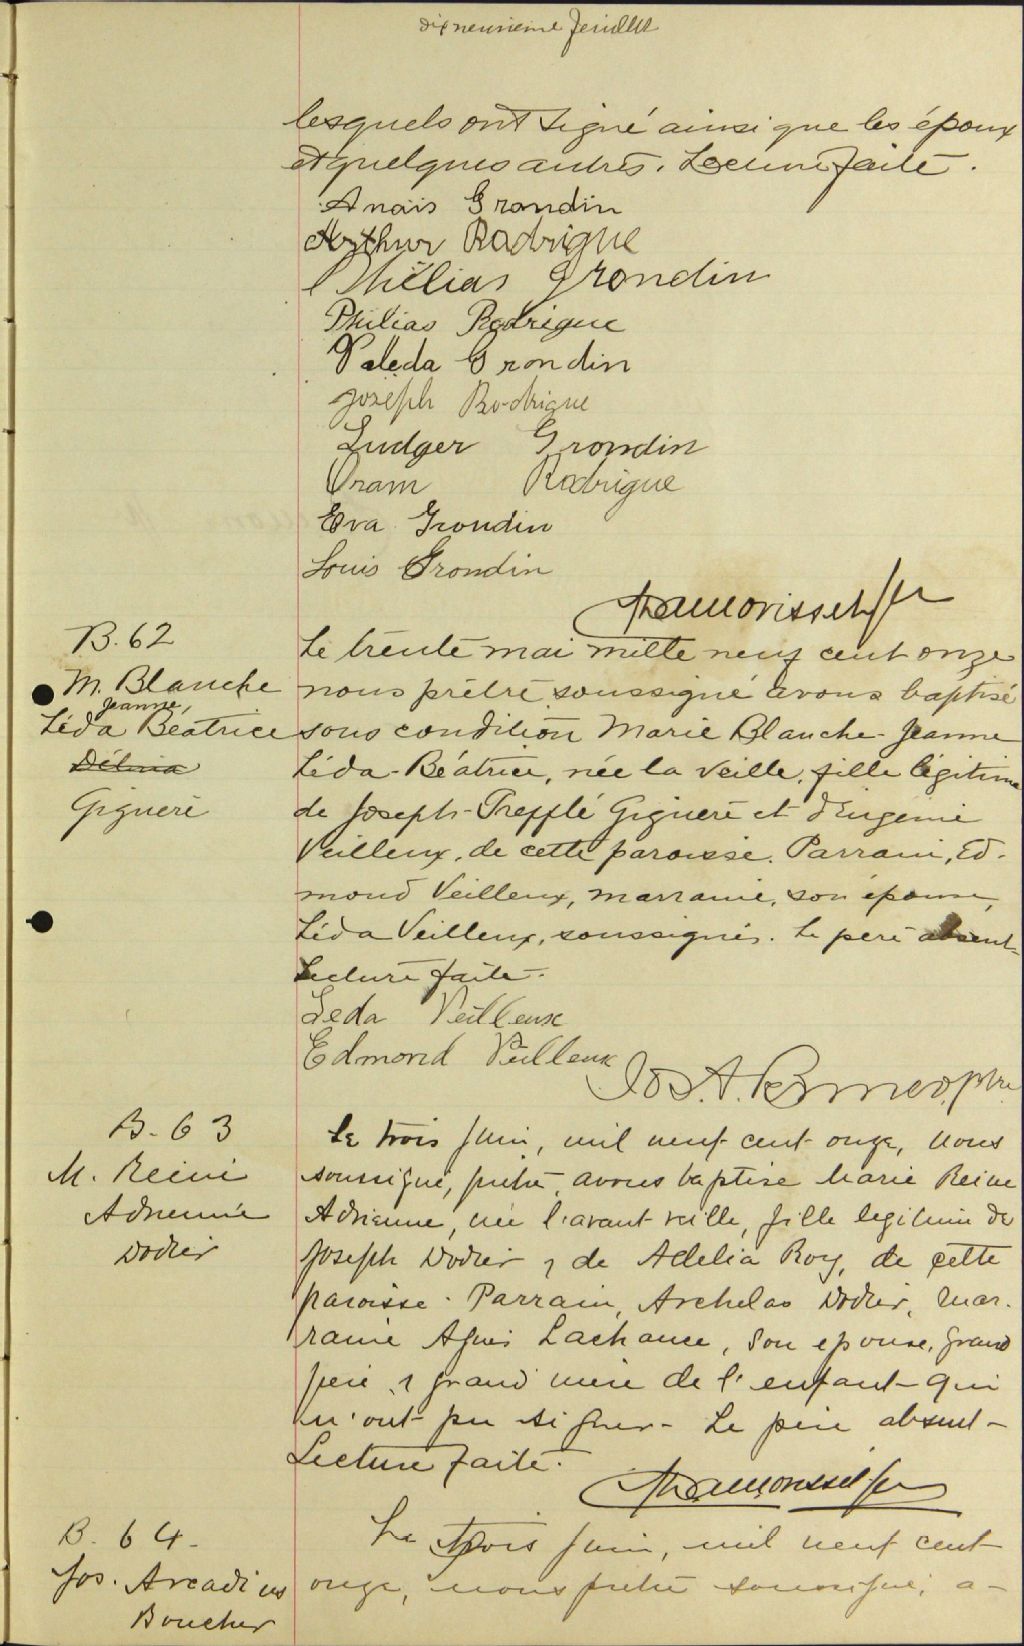 dix neuvieme feuillet
lesquels ont signé ainsi que les époux
et quelques autres. Lecture faite.
Anaïs Grondin
Arthur Rodrigue
Philias Grondin
Philias Rodrigue
Valeda Grondin
Joseph Rodrigue
Ludger Grondin
Oram Rodrigue
Eva Grondin
Louis Grondin
B. 62
M. Blanche
Jeanne,
Léda Béatrice
Délina
Giguere
Le trente mai mille neuf cent onze
nous prêtre soussigné avons baptisé
sous condition Marie Blanche-Jeanne
Léda-Béatrice, née la veille, fille légitime
de Joseph-Trefflé Giguere et d'Eugenie
Veilleux, de cette paroisse. Parrain, Ed-
mond Veilleux, marraine, son épouse,
Léda Veilleux, soussignés. Le pere absent-
Lecture faite.
Leda Veilleux
Edmond Veilleux
Jos. A. ptre
B. 63
M. Reine
Adrienne
Dodier
Le trois juin, mil neuf cent onze, nous
soussigné, prêtre, avons baptise Marie Reine
Adrienne, née l'avant veille, fille legitime de
Joseph Dodier & de Adelia Roy, de cette
paroisse. Parrain, Archelas Dodier, mar-
raine Agnes Lachance, son epouse, grand
pere & grand mère de l'enfant qui
n'ont pu signer- Le père absent-
Lecture faite.
B. 64-
Jos. Arcadius
Boucher
Le trois juin, mil neuf cent
onze, nous prêtre soussigné, a-